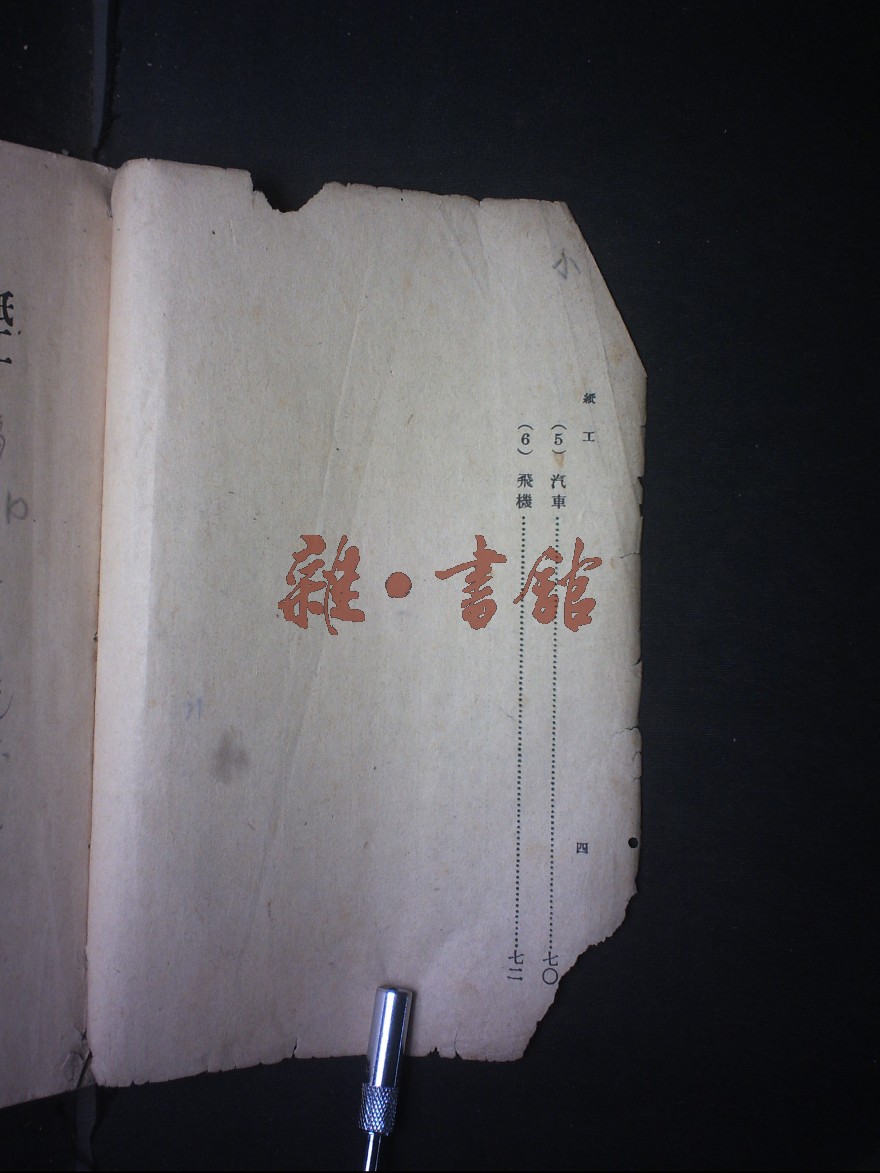 小
紙工
四
(5) 汽車……………………七〇
(6) 飛機……………………七二
雜·書館
紙工